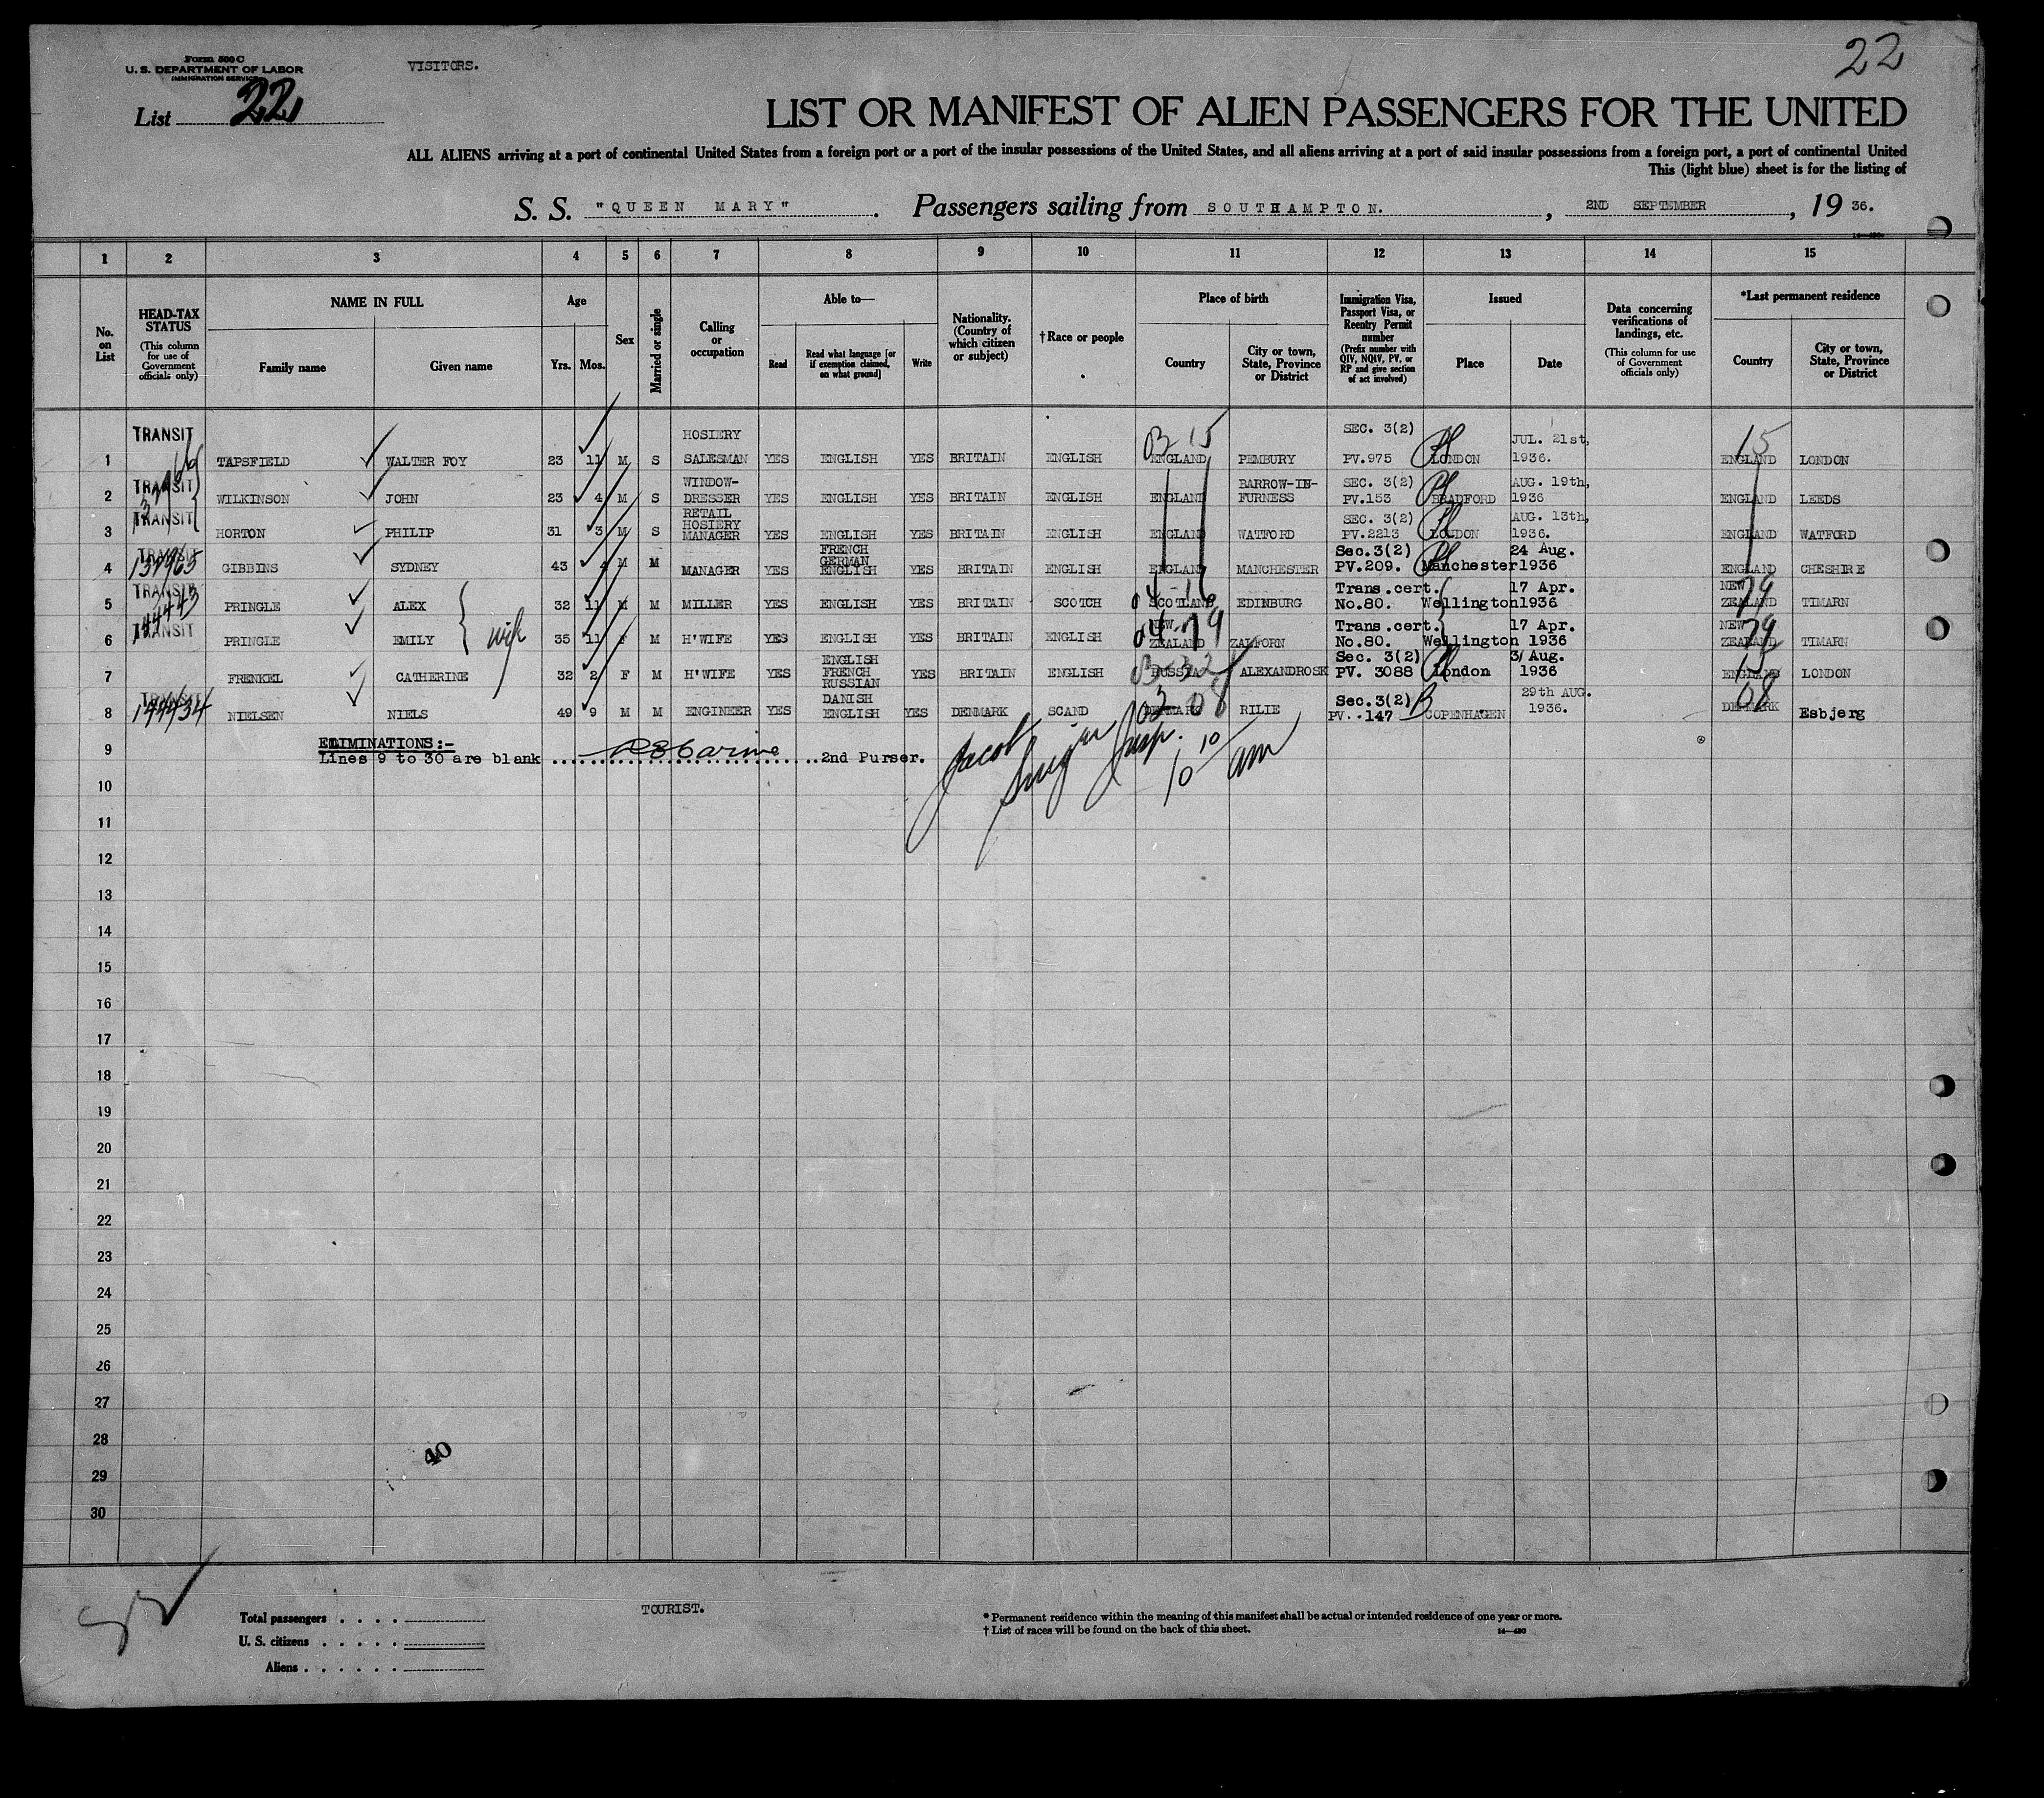 22
Form 500 C
U. S. DEPARTMENT OF LABOR
IMMIGRATION SERVICE
VISITORS.
List 22
LIST OR MANIFEST OF ALIEN PASSENGERS FOR THE UNITED
ALL ALIENS arriving at a port of continental United States from a foreign port or a port of the insular possessions of the United States, and all aliens arriving at a port of said insular possessions from a foreign port, a port of continental United
This (light blue) sheet is for the listing of
S. S. "QUEEN MARY". Passengers sailing from SOUTHAMPTON., 2ND SEPTEMBER, 19 36.
1 2 3 4 5 6 7 8 9 10 11 12 13 14 15
No. on List
HEAD-TAX STATUS (This column for use of Government officials only)
NAME IN FULL Family name Given name
Age Yrs. Mos.
Sex
Married or single
Calling or occupation
Able to— Read Read what language [or if exemption claimed, on what ground] Write
Nationality. (Country of which citizen or subject)
†Race or people
Place of birth Country City or town, State, Province or District
Immigration Visa, Passport Visa, or Reentry Permit number (Prefix number with QIV, NQIV, PV, or RP and give section of act involved)
Issued Place Date
Data concerning verifications of landings, etc. (This column for use of Government officials only)
*Last permanent residence Country City or town, State, Province or District
1 TRANSIT TAPSFIELD WALTER FOY 23 11 M S HOSIERY SALESMAN YES ENGLISH YES BRITAIN ENGLISH ENGLAND PEMBURY SEC. 3(2) PV.975 LONDON JUL. 21st, 1936. 15 ENGLAND LONDON
2 TRANSIT WILKINSON JOHN 23 4 M S WINDOW-DRESSER YES ENGLISH YES BRITAIN ENGLISH ENGLAND BARROW-IN-FURNESS SEC. 3(2) PV.153 BRADFORD AUG. 19th, 1936 ENGLAND LEEDS
3 TRANSIT HORTON PHILIP 31 3 M S RETAIL HOSIERY MANAGER YES ENGLISH YES BRITAIN ENGLISH ENGLAND WATFORD SEC. 3(2) PV.2213 LONDON AUG. 13th, 1936. ENGLAND WATFORD
4 TRANSIT 137965 GIBBINS SYDNEY 43 4 M M MANAGER YES FRENCH GERMAN ENGLISH YES BRITAIN ENGLISH ENGLAND MANCHESTER Sec.3(2) PV.209. Manchester 24 Aug. 1936 ENGLAND CHESHIRE
5 TRANSIT PRINGLE ALEX 32 11 M M MILLER YES ENGLISH YES BRITAIN SCOTCH 04-16 SCOTLAND EDINBURG Trans.cert. No.80. Wellington 17 Apr. 1936 NEW ZEALAND 79 TIMARN
6 TRANSIT PRINGLE EMILY wife 35 11 F M H'WIFE YES ENGLISH YES BRITAIN ENGLISH 04-79 NEW ZEALAND Trans.cert. No.80. Wellington 17 Apr. 1936 NEW ZEALAND 79 TIMARN
7 FRENKEL CATHERINE 32 2 F M H'WIFE YES ENGLISH FRENCH RUSSIAN YES BRITAIN ENGLISH RUSSIA ALEXANDROSK Sec. 3(2) PV. 3088 London 31 Aug. 1936 15 ENGLAND LONDON
8 TRANSIT NIELSEN NIELS 49 9 M M ENGINEER YES DANISH ENGLISH YES DENMARK SCAND 02 08 DENMARK RILIE Sec.3(2) PV..147 COPENHAGEN 29th AUG. 1936. 08 DENMARK Esbjerg
9 ELIMINATIONS:-
Lines 9 to 30 are blank 2nd Purser.
Jacob Insp. 10 10 am
10
11
12
13
14
15
16
17
18
19
20
21
22
23
24
25
26
27
28
29
30
40
Total passengers
U. S. citizens
Aliens
TOURIST.
* Permanent residence within the meaning of this manifest shall be actual or intended residence of one year or more.
† List of races will be found on the back of this sheet.
14—430